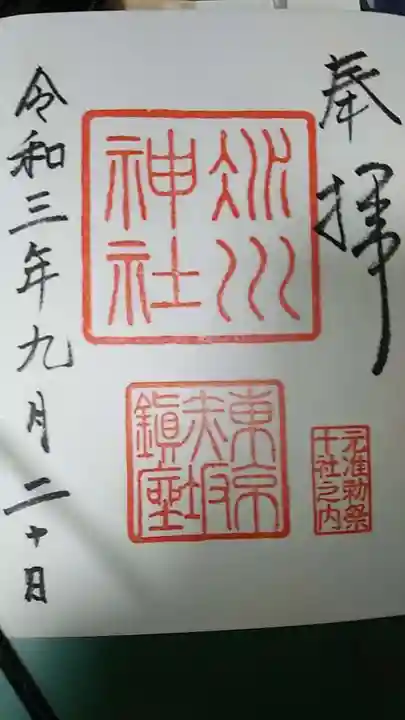 奉拝
冰川
神社
東京
赤坂
鎭座
元准勅祭
十社之内
令和三年九月二十日